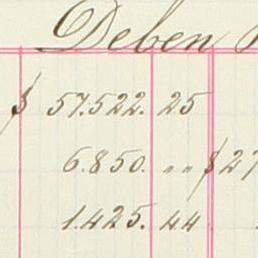 Deben
$ 57.522. 25
6.850. „ „ $ 27
1.425. 44